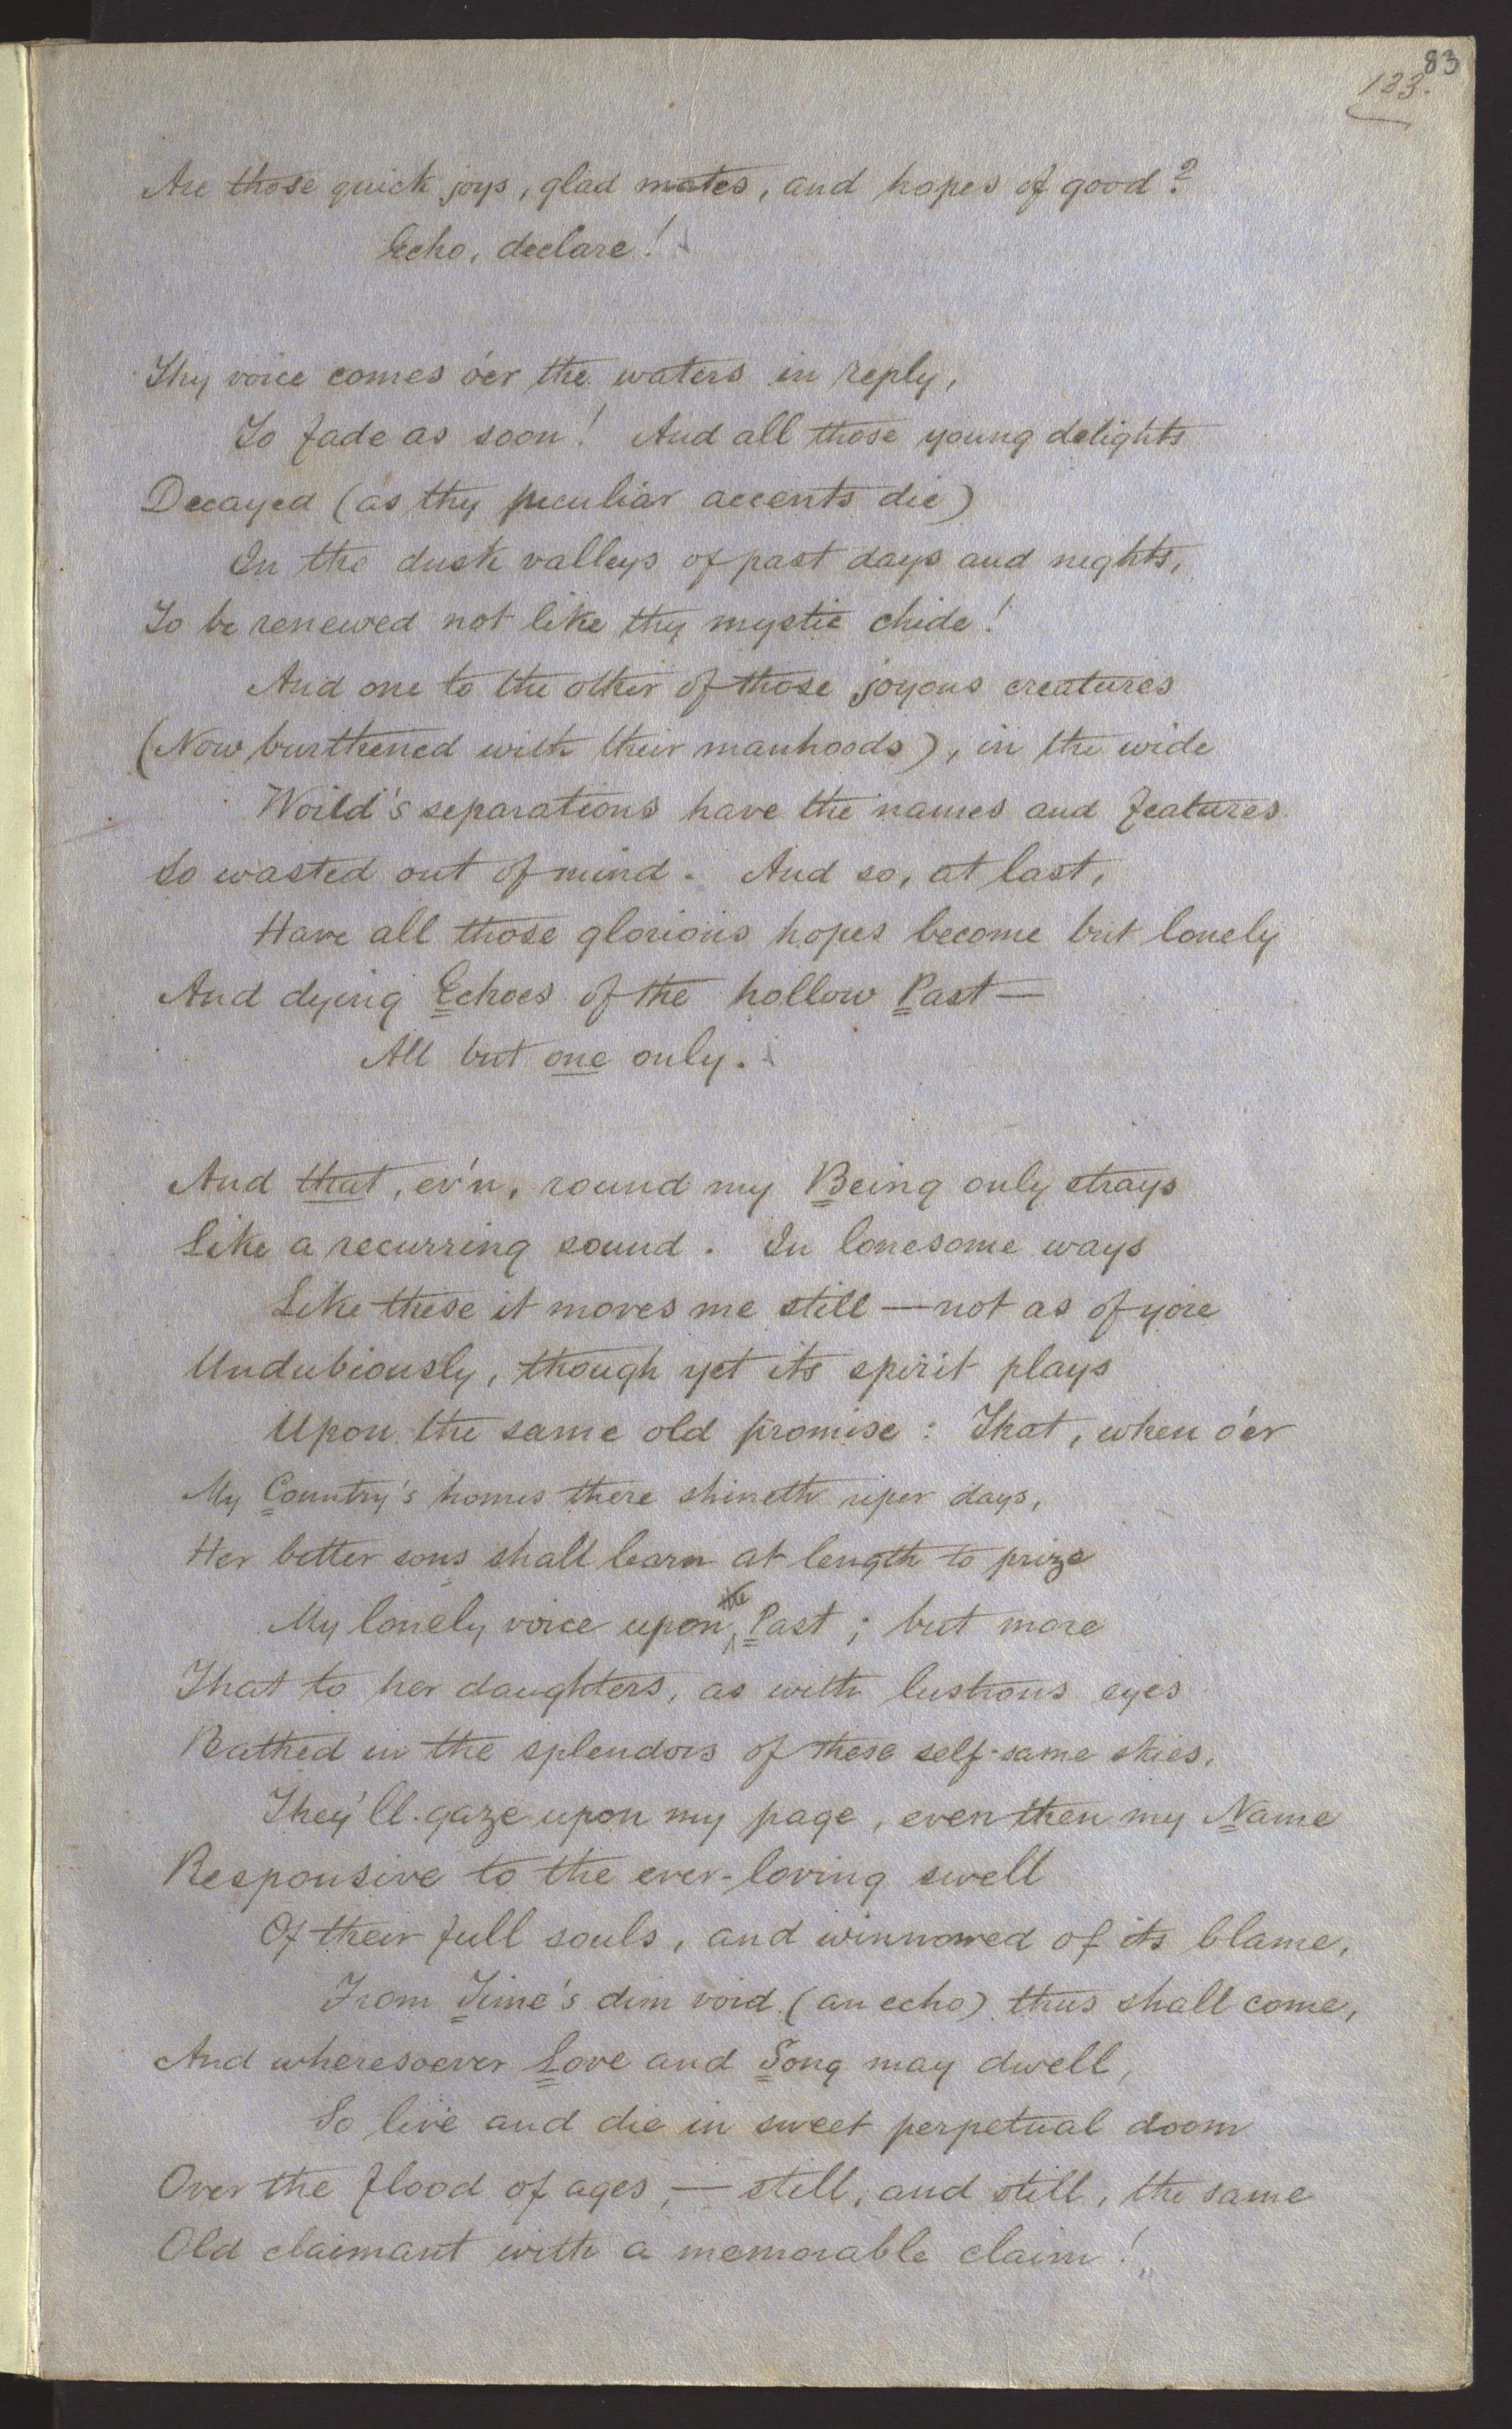 83
123.
Are those quick joys, glad mates, and hopes of good?
Echo, declare!
Thy voice comes o'er the waters in reply,
To fade as soon! And all those young delights
Decayed (as thy peculiar accents die)
In the dusk valleys of past days and nights,
To be renewed not like thy mystic chide!
And one to the other of those joyous creatures
(Now burthened with their manhoods), in the wide
World's separations have the names and features
So wasted out of mind. And so, at last,
Have all those glorious hopes become but lonely
And dying Echoes of the hollow Past—
All but one only.
And that, ev'n, round my Being only strays
Like a recurring sound. In lonesome ways
Like these it moves me still—not as of yore
Undubiously, though yet its spirit plays
Upon the same old promise: That, when o'er
My Country's homes there shineth riper days,
Her better sons shall learn at length to prize
My lonely voice upon the Past; but more
That to her daughters, as with lustrous eyes
Bathed in the splendors of these self-same skies,
They'll gaze upon my page, even then my Name
Responsive to the ever-loving swell
Of their full souls, and winnowed of its blame,
From Time's dim void (an echo) thus shall come,
And wheresoever Love and Song may dwell,
So live and die in sweet perpetual doom
Over the flood of ages,—still, and still, the same
Old claimant with a memorable claim!